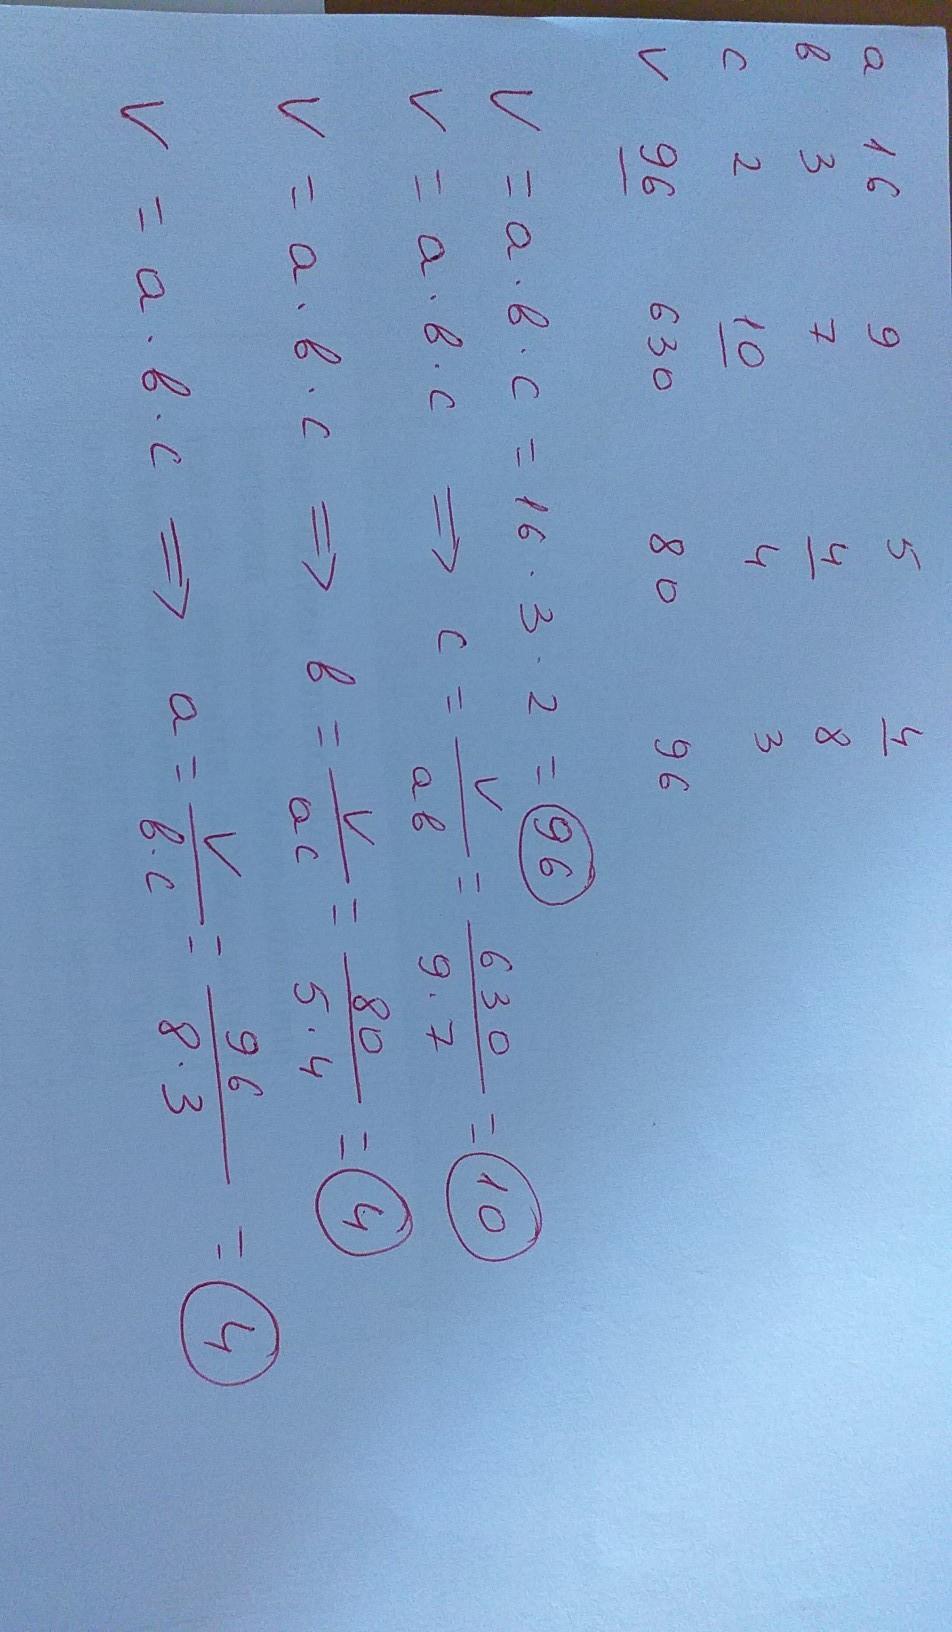 a 16 9 5 4
b 3 7 4 8
c 2 10 4 3
V 96 630 80 96
V = a · b · c = 16 · 3 · 2 = 96
V = a · b · c ⇒ c = V/ab = 630/9·7 = 10
V = a · b · c ⇒ b = V/ac = 80/5·4 = 4
V = a · b · c ⇒ a = V/b·c = 96/8·3 = 4